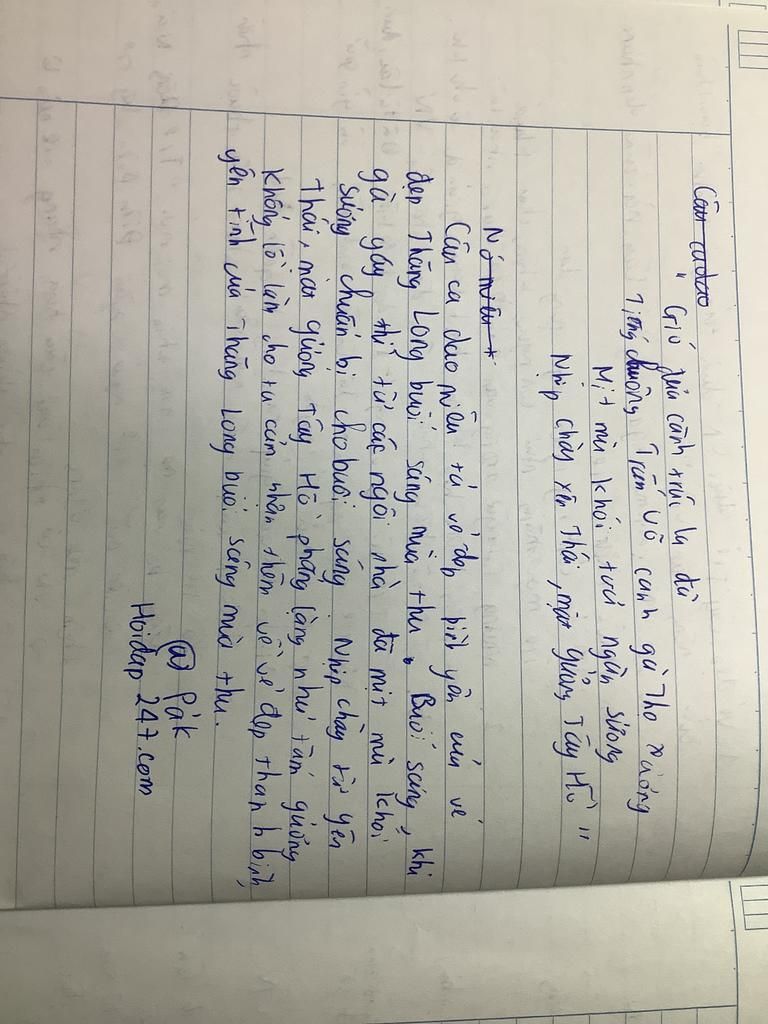 Câu ca dao
" Gió đưa cành trúc la đà
Tiếng chuông Trấn Võ canh gà Thọ Xương
Mịt mù khói toả ngàn sương
Nhịp chày Yên Thái, mặt gương Tây Hồ "
Câu ca dao miêu tả vẻ đẹp bình yên của vẻ
đẹp Thăng Long buổi sáng mùa thu. Buổi sáng, khi
gà gáy thì từ các ngôi nhà đã mịt mù khói
sương chuẩn bị cho buổi sáng. Nhịp chày từ yên
Thái, mặt gương Tây Hồ phẳng lặng như tấm gương
khổng lồ làm cho ta cảm nhận thêm về vẻ đẹp thanh bình,
yên tĩnh của Thăng Long buổi sáng mùa thu.
@ Pák
Hoidap 247.com